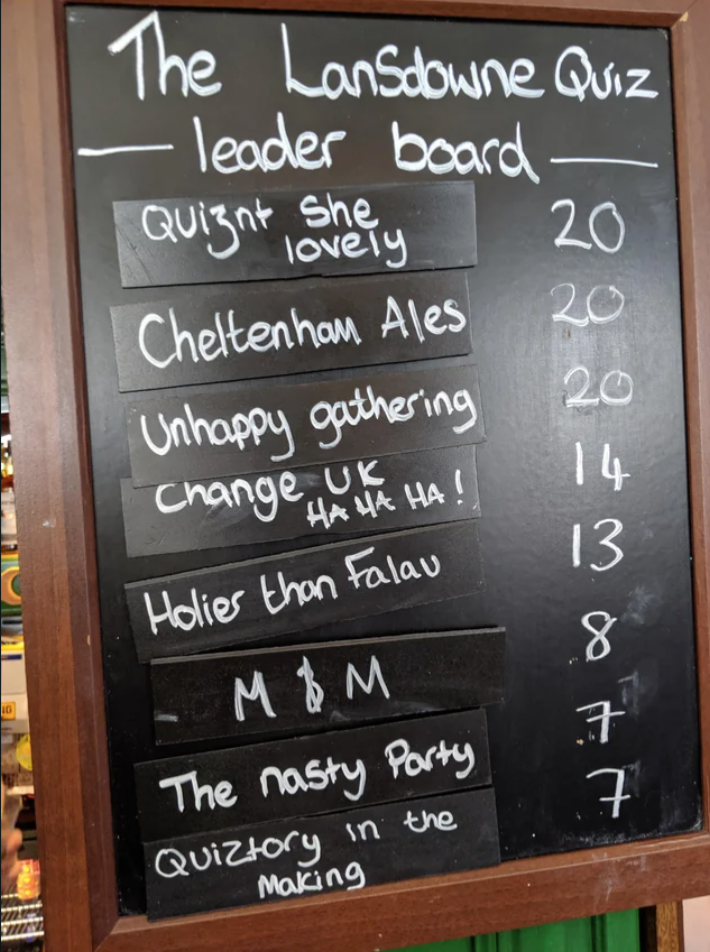 The Lansdowne Quiz
leader board
Quiznt She 20
lovely
Cheltenham Ales 20
Unhappy gathering 20
Change UK 14
HA HA HA!
Holier than Falau 13
M & M 8
The nasty Party 7
Quiztory in the 7
Making